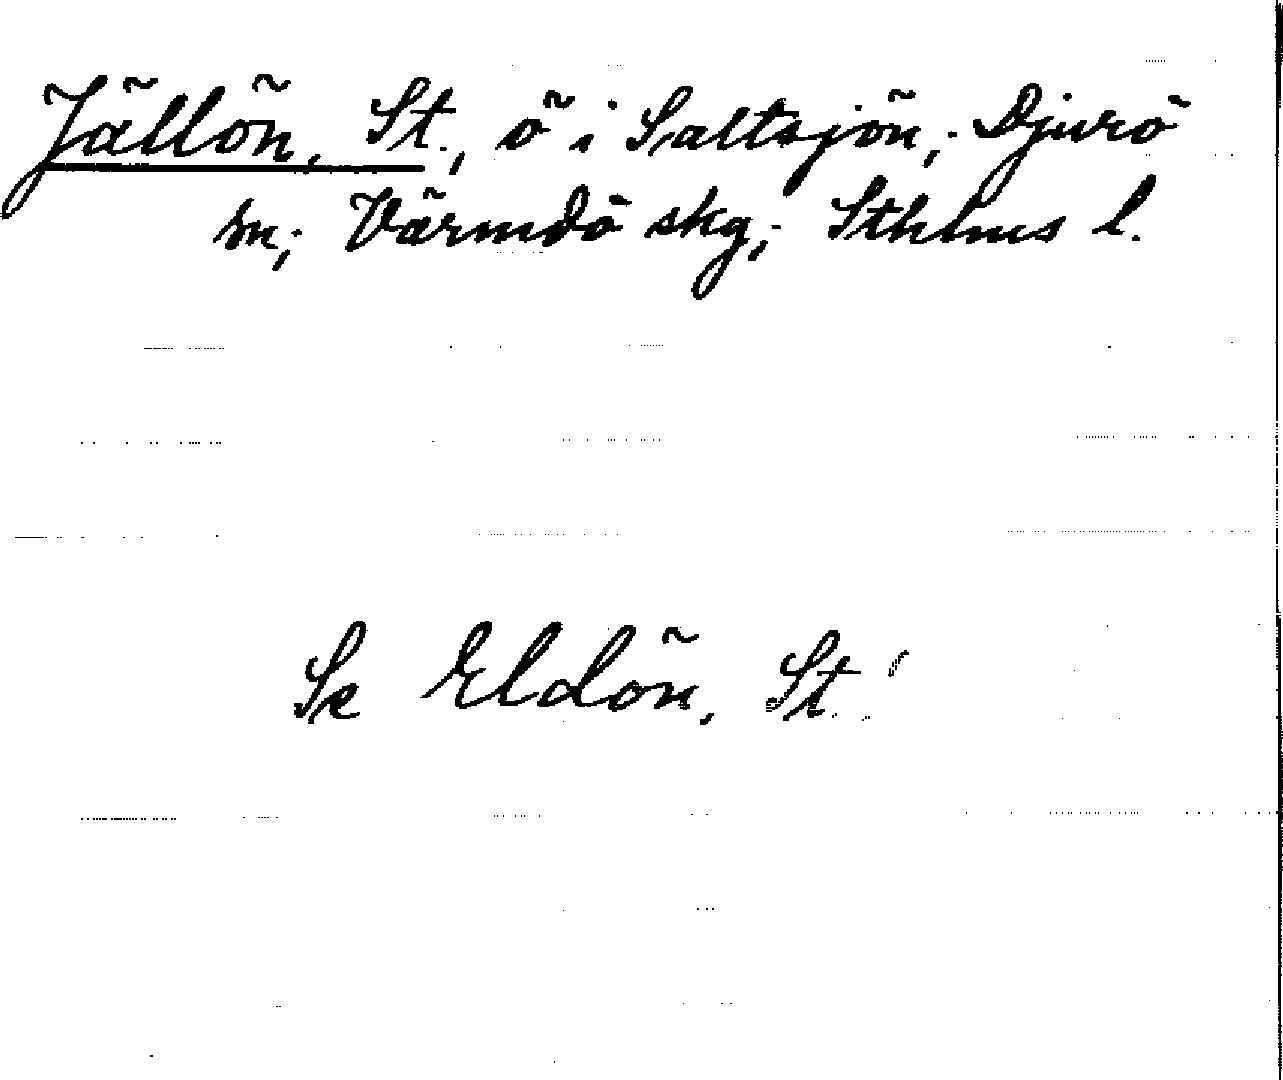 Jällön, St., ö i Saltsjön; Djurö
sn; Värmdö skg; Sthlms l.
Se Eldön, St.